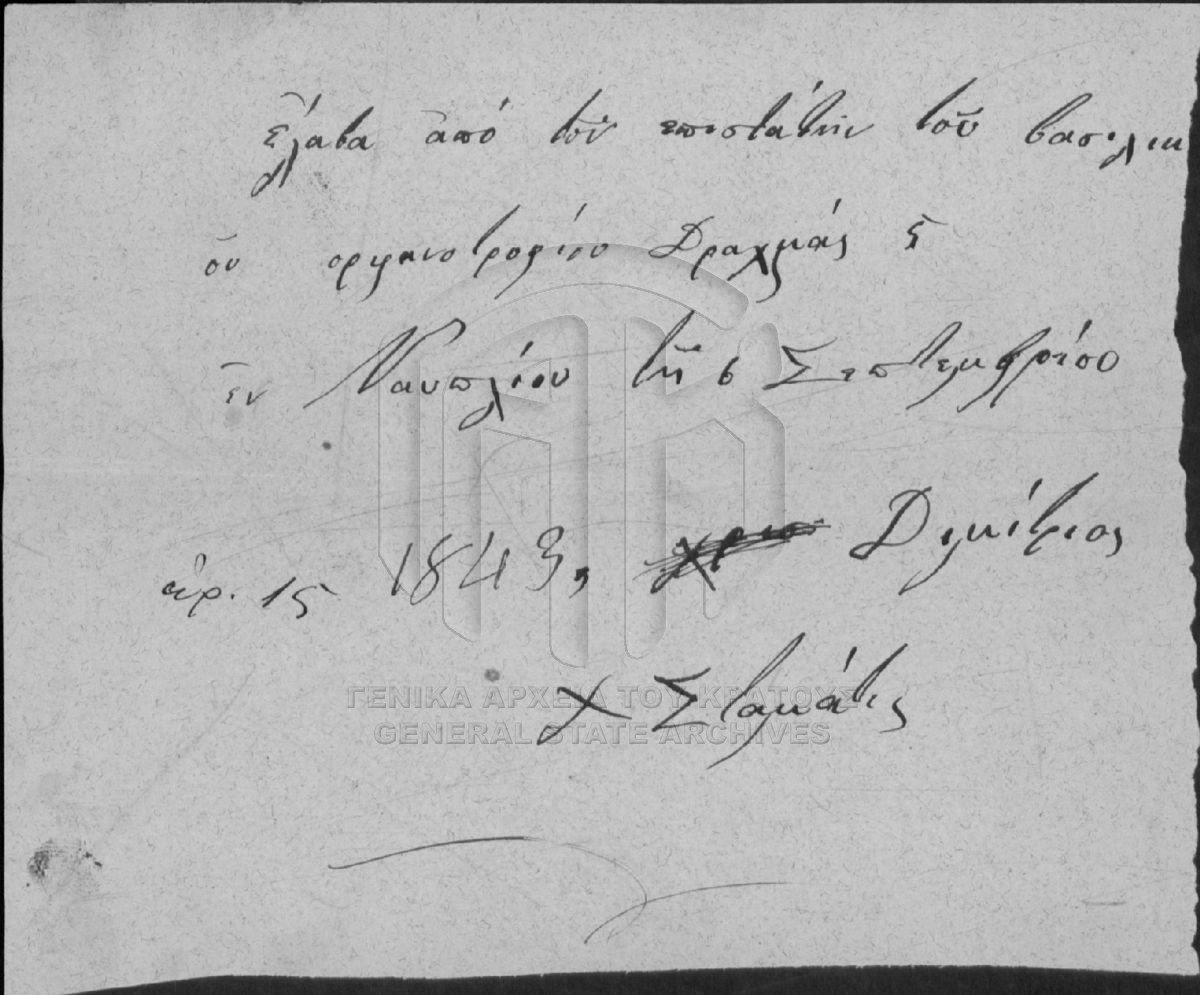 ἔλαβα ἀπό τον επιστάτην τοῦ βασιλικ
οῦ ορφανοτροφίου Δραχμάς 5
ἐν Ναυπλίου τῆ 6 Σεπτεμβρίου
ἀρ. 15 1843, Διμίτριος
Χ Σταμάτις
ΓΕΝΙΚΑ ΑΡΧΕΙΑ ΤΟΥ ΚΡΑΤΟΥΣ
GENERAL STATE ARCHIVES